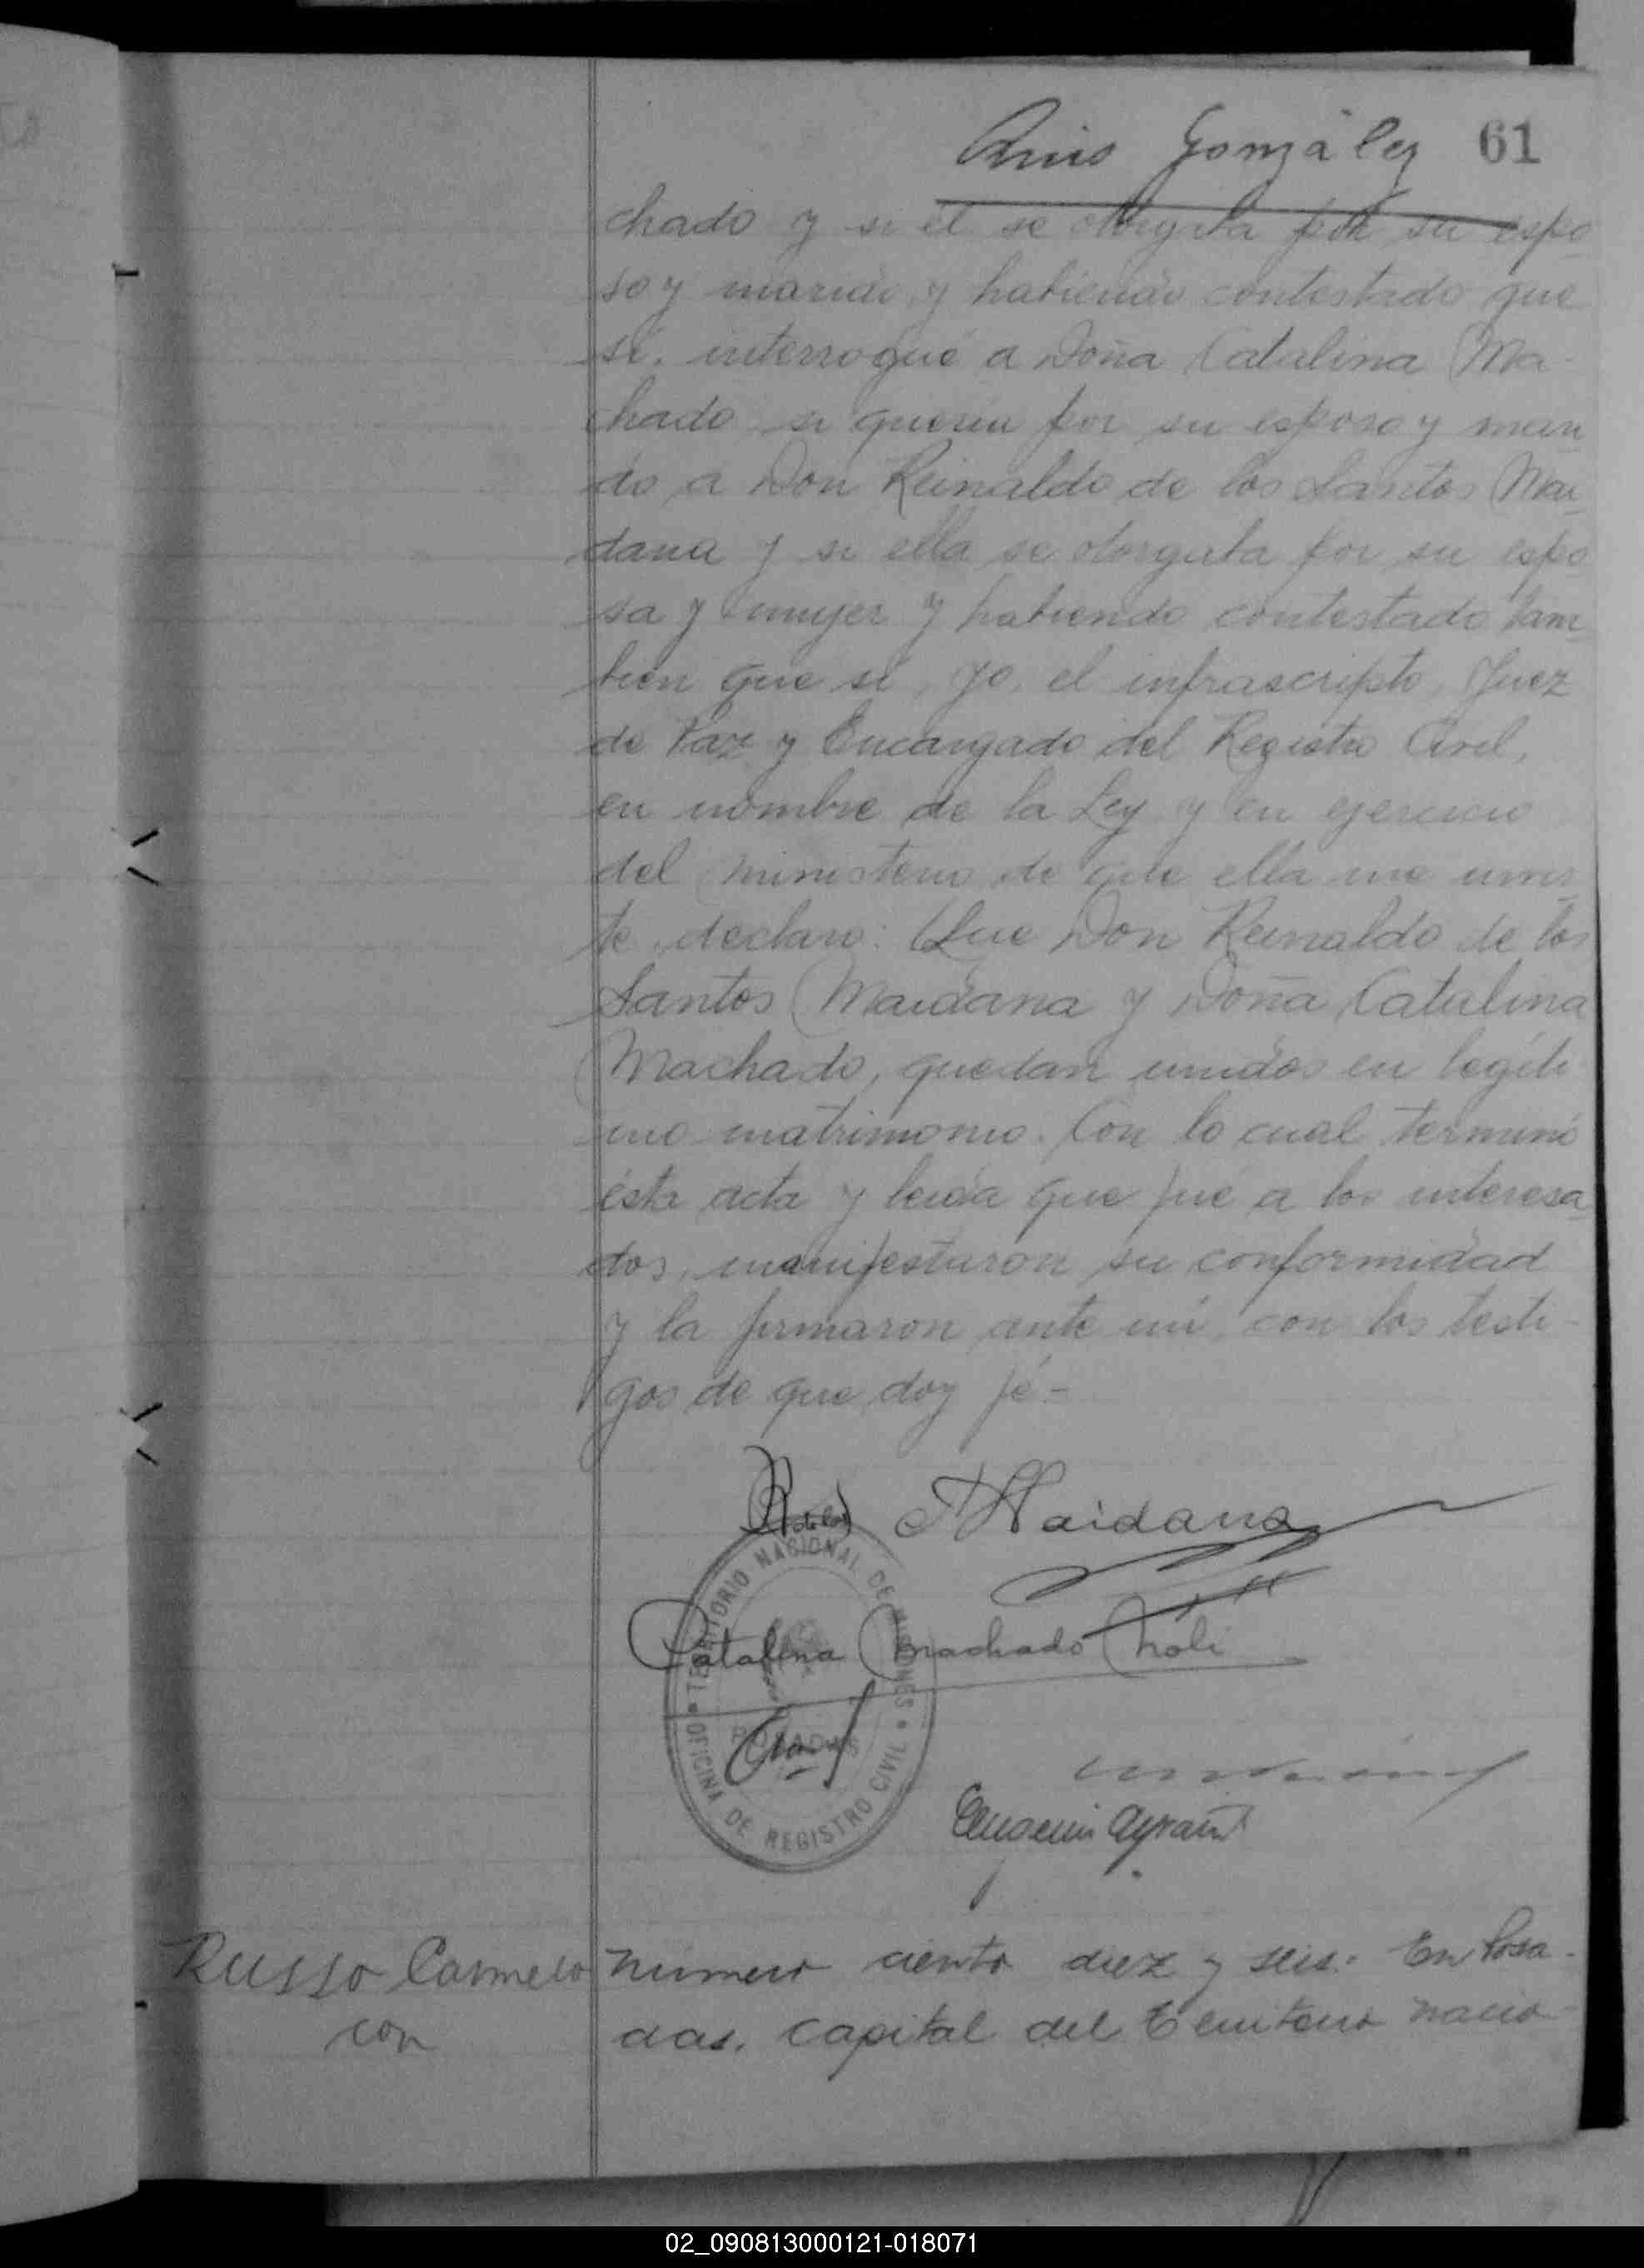 González 61
chado y si él se otorgaba por su espo
so y marido, y habiendo contestado que
sí, interrogué a Doña Catalina Ma
chado si quería por su esposo y mari
do a Don Reinaldo de los Santos Mai_
dana y si ella se otorgaba por su espo
sa y mujer y habiendo contestado tam_
bien que sí, yo, el infrascripto, Juez
de Paz y Encargado del Registro Civil,
en nombre de la Ley y en ejercicio
del ministerio de que ella me invis_
te, declaro: Que Don Reinaldo de los
Santos Maidana y Doña Catalina
Machado, quedan unidos en legíti
mo matrimonio. Con lo cual terminó
ésta acta y leída que fué a los interesa_
dos, manifestaron su conformidad
y la firmaron ante mí, con los testi-
gos de que doy fé-
R de los S Maidana
Catalina Machado Noli
TERRITORIO NACIONAL DE MISIONES
POSADAS
OFICINA DE REGISTRO CIVIL
Russo Carmelo
con
Número ciento diez y seis: En Posa-
das, capital del Territorio Nacio-
02_090813000121-018071